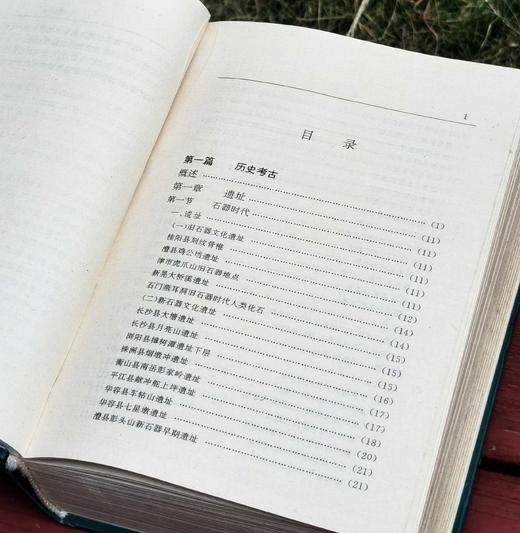 1
目 录
第一篇 历史考古
概述 (1)
第一章 遗址 (11)
第一节 石器时代 (11)
一、遗址 (11)
(一)旧石器文化遗址 (11)
桂阳县刻纹骨椎 (11)
澧县鸡公垱遗址 (11)
津市虎爪山旧石器地点 (12)
新晃大桥溪遗址 (14)
石门燕耳洞旧石器时代人类化石 (14)
(二)新石器文化遗址 (15)
长沙县大塘遗址 (15)
长沙县月亮山遗址 (15)
浏阳县樟树潭遗址下层 (16)
株洲县烟墩冲遗址 (17)
衡山县南岳彭家岭遗址 (17)
平江县献冲舵上坪遗址 (18)
华容县车轱山遗址 (20)
华容县七星墩遗址 (21)
澧县彭头山新石器早期遗址 (21)